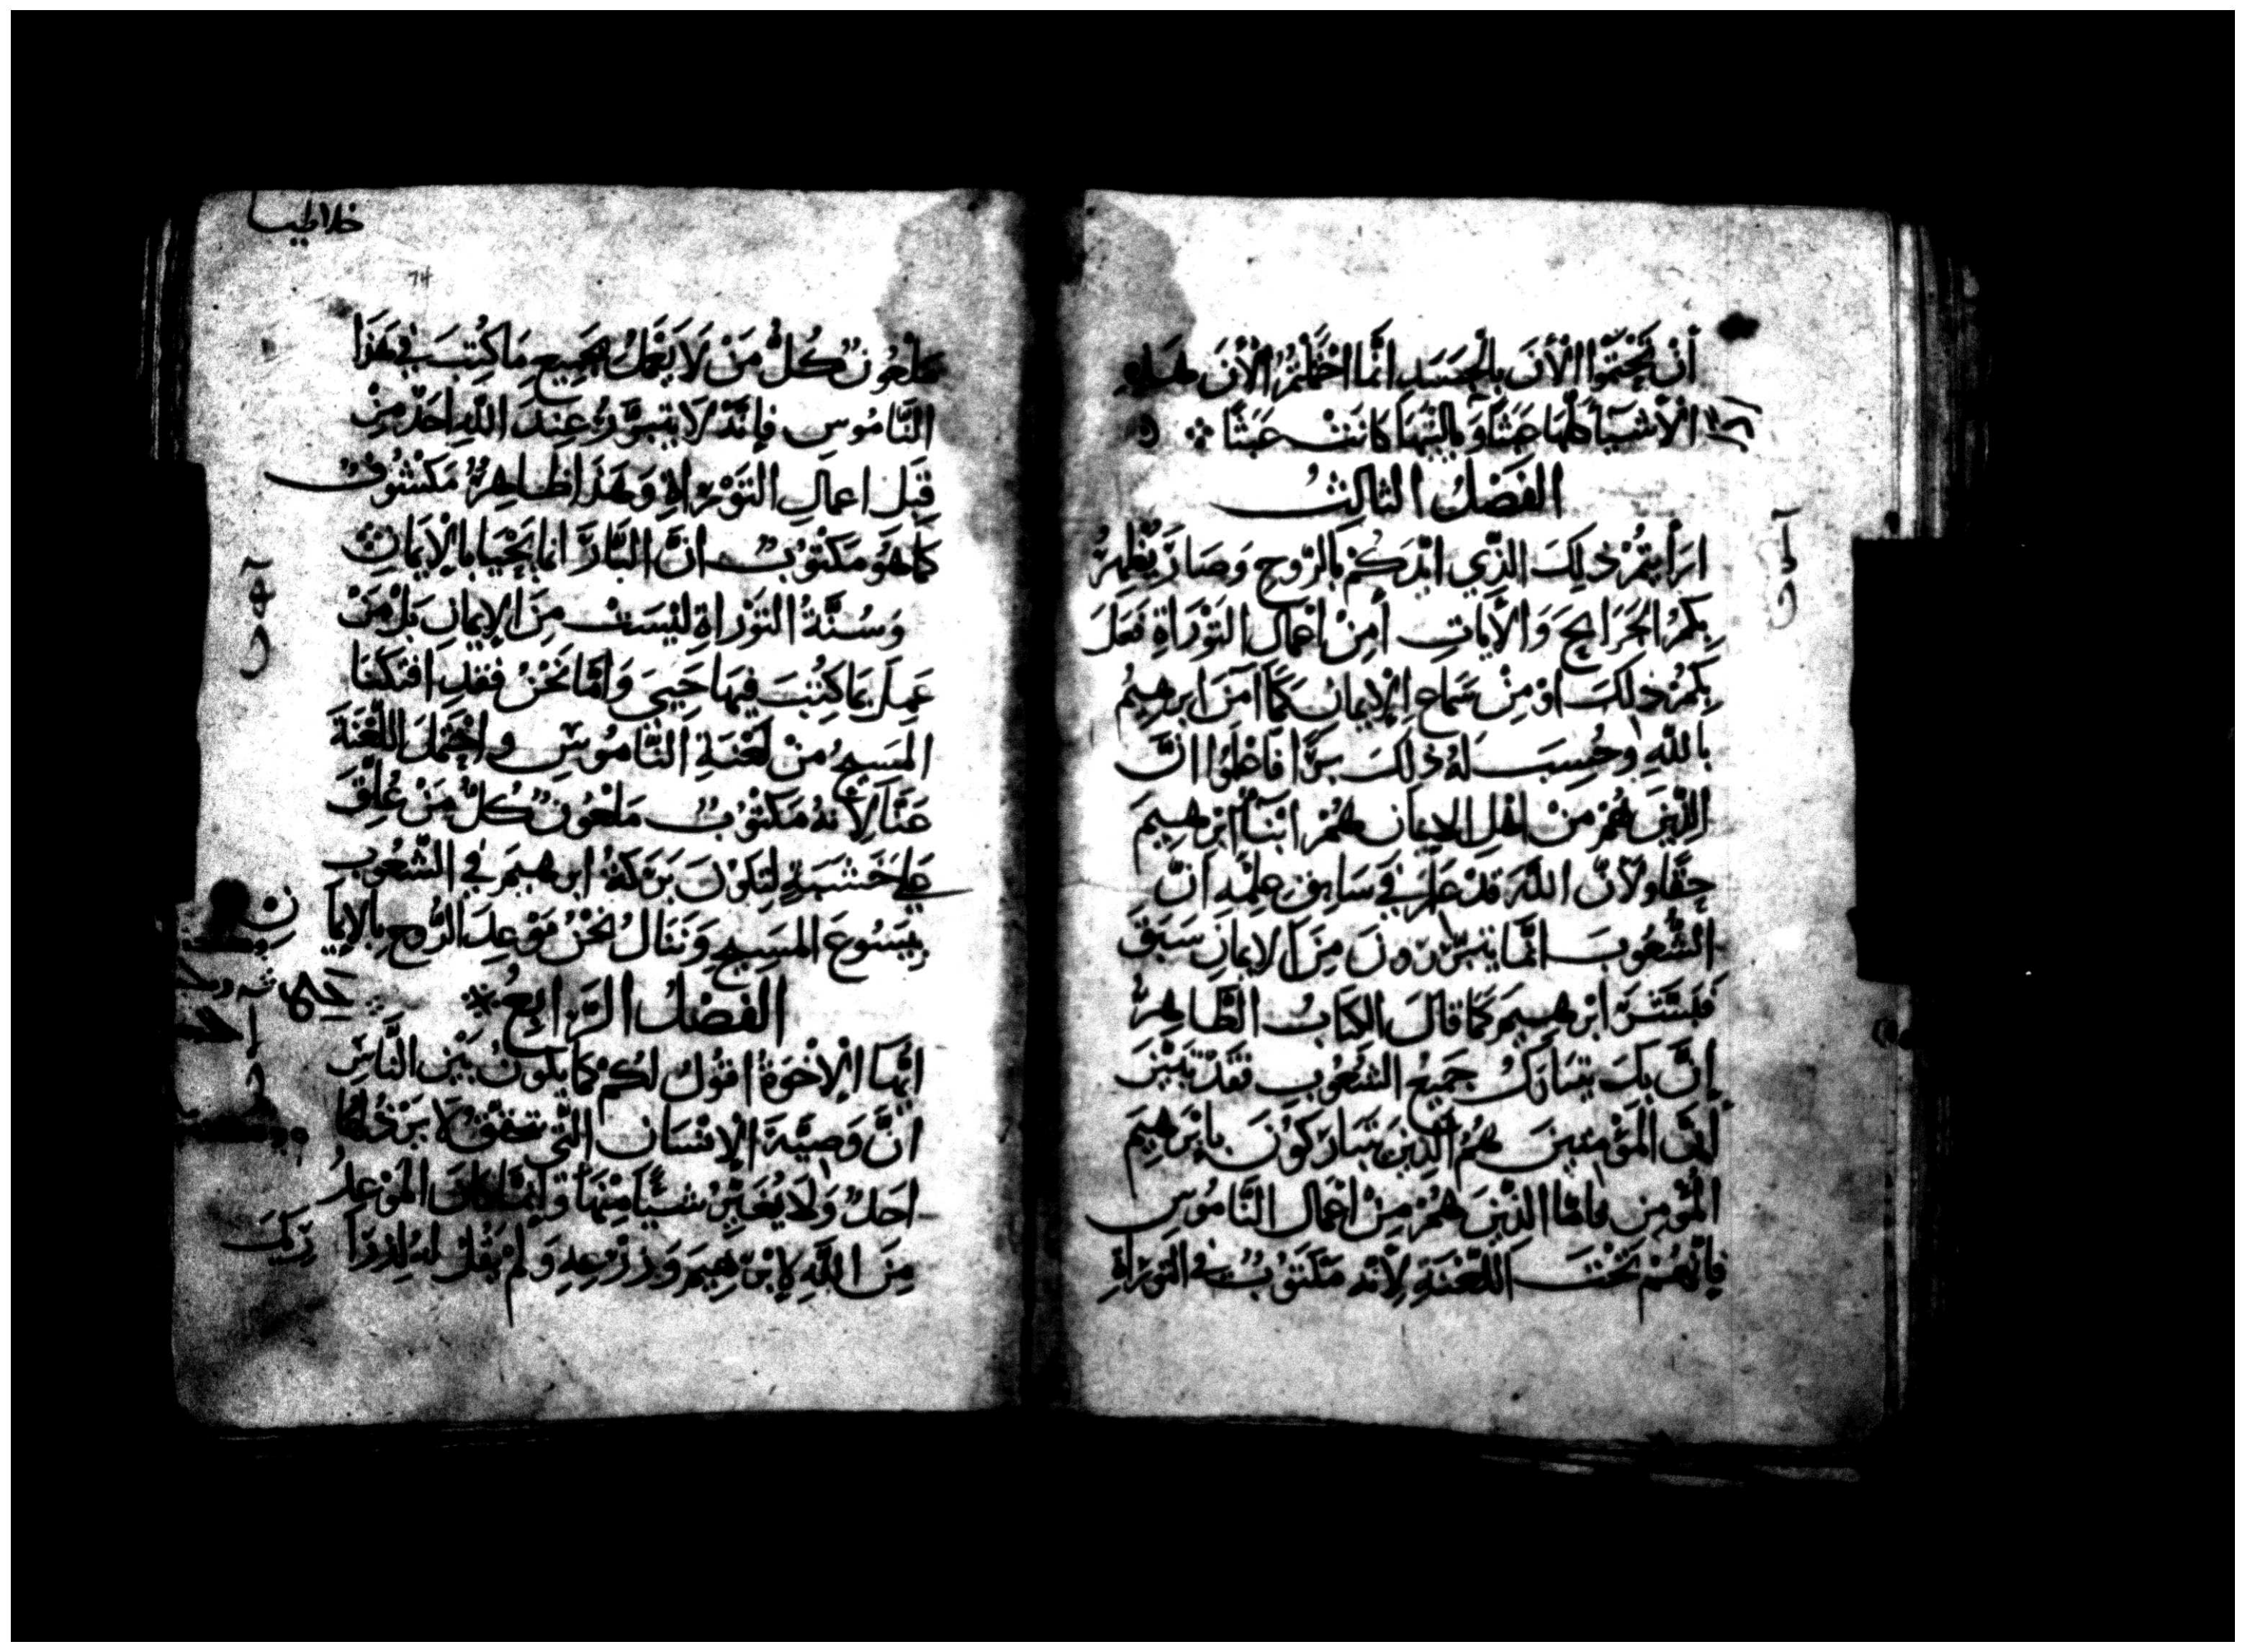 أَنْ تَخْتِمُوا الْأَنَ بِالْجَسَدِ انَّما احْتَمَلْتُمُ الْأَنَ هَذِهِ
الْأَشْيَآءَ كُلَّهَا عَبَثًا وَيَالَيْتَهَا كَانَتْ عَبَثًا
الفَصْلُ الثالثُ
ارَأَيتُمْ ذلِكَ الذَّي ايَّدَكُمْ بِالرُّوحِ وَصَارَ يُظْهِرُ
بِكُمُ الجَرَايحَ وَالْأَيَاتِ أَمِنْ اعْمَالِ التَوْرَاةِ فَعَلَ
بِكُمْ ذلِكَ اوْ مِنْ سَمَاعِ الإيمَانِ كَمَا آمَنَ ابرهيمُ
بِاللَّهِ وحُسِبَ لَهُ ذلِكَ بِرًّا فَاعْلَمُوا انَّ
الذِينَ هُمْ مِنْ اهْلِ الايمَانِ هُمْ ابْنَآءُ ابْرَهِيمَ
حَقًّا ولأَنَّ اللَّهَ قَدْ عَلِمَ فِي سَابِقِ عِلْمِهِ أَنَّ
الشُّعُوبَ انَّمَا يَتَبَرَّرُونَ مِنَ الايمَانِ سَبَقَ
فَبَشَّرَ ابْرَهِيمَ كَمَا قَالَ الكِتَابُ الطَّاهِرُ
إِنَّ بِكَ يَتَبَارَكُ جَمِيعُ الشُعُوبِ فَقَدْ تَبَيَّنَ
انَّ المُؤْمِنينَ هُمُ الَّذِينَ يَتَبَارَكُونَ بِابْرَهِيمَ
الْمُؤْمِنِ فَامَّا الَّذِينَ هُمْ مِنْ اعْمَالِ النَّامُوسِ
فَانَّهُمْ تَحْتَ اللَّعْنَةِ لِأَنَّهُ مَكْتُوبٌ فِي التَوْرَاةِ
خلاطيا
74
مَلْعُونٌ كُلُّ مَنْ لَا يَعْمَلُ بِجَمِيعِ مَا كُتِبَ فِي هَذَا
النَّامُوسِ فَإِنَّهُ لَا يَتَبَرَّرُ عِنْدَ اللَّهِ احَدٌ مِنْ
قِبَلِ اعمَالِ التَوْرَاةِ وَهَذَا ظَاهِرٌ مَكْشُوفٌ
كَمَا هُوَ مَكْتُوبٌ انَّ البَارَّ انما يَحْيَا بِالْإيمَانِ
وَسُنَّةُ التَوْرَاةِ لَيْسَتْ مِنَ الإيمَانِ بَلْ مَنْ
عَمِلَ بِمَا كُتِبَ فِيهَا حَيِيَ وَامَّا نَحْنُ فَقَدِ افْتَكَّنَا
المَسِيحُ مِنْ لَعْنَةِ النَّامُوسِ واحْتَمَلَ اللَّعْنَةَ
عَنَّا لِأَنَّهُ مَكْتُوبٌ مَلْعُونٌ كُلُّ مَنْ عُلِّقَ
عَلَى خَشَبَةٍ لِتَكُونَ بَرَكَةُ ابرهِيمَ فِي الشُّعُوبِ
بِيَسُوعَ المَسِيحِ وَنَنَالُ نَحْنُ مَوْعِدَ الرُّوحِ بِالايمَا
نِ
الفَصْلُ الرَّابِعُ
ايُّهَا الإخْوَةُ اقُولُ لَكُمْ كَمَا يَكُونُ بَيْنَ النَّاسِ
انَّ وَصِيَّةَ الإنْسَانِ الَّتِي تحقق لَا يَرْذُلُهَا
احَدٌ وَلَا يُغَيِّرُ شَيْئًا مِنْهَا وَانَّمَا كَانَ الْمَوْعِدُ
مِنَ اللَّهِ لإبْرَهِيمَ وَزَرْعِهِ وَلَمْ يَقُلْ لَهُ